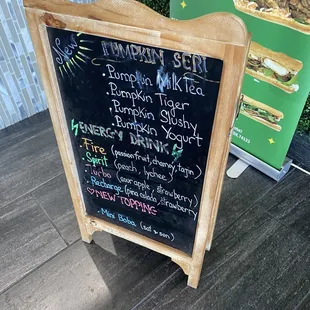 New
PUMPKIN SERI
Pumpkin Milk Tea
Pumpkin Tiger
Pumpkin Slushy
Pumpkin Yogurt
ENERGY DRINK
Fire (passionfruit, chamoy, tajin)
Spirit (peach, lychee)
Turbo (sour apple, strawberry)
Recharge (pina colada, strawberry)
NEW TOPPING
- Mini Boba (sat & sun)